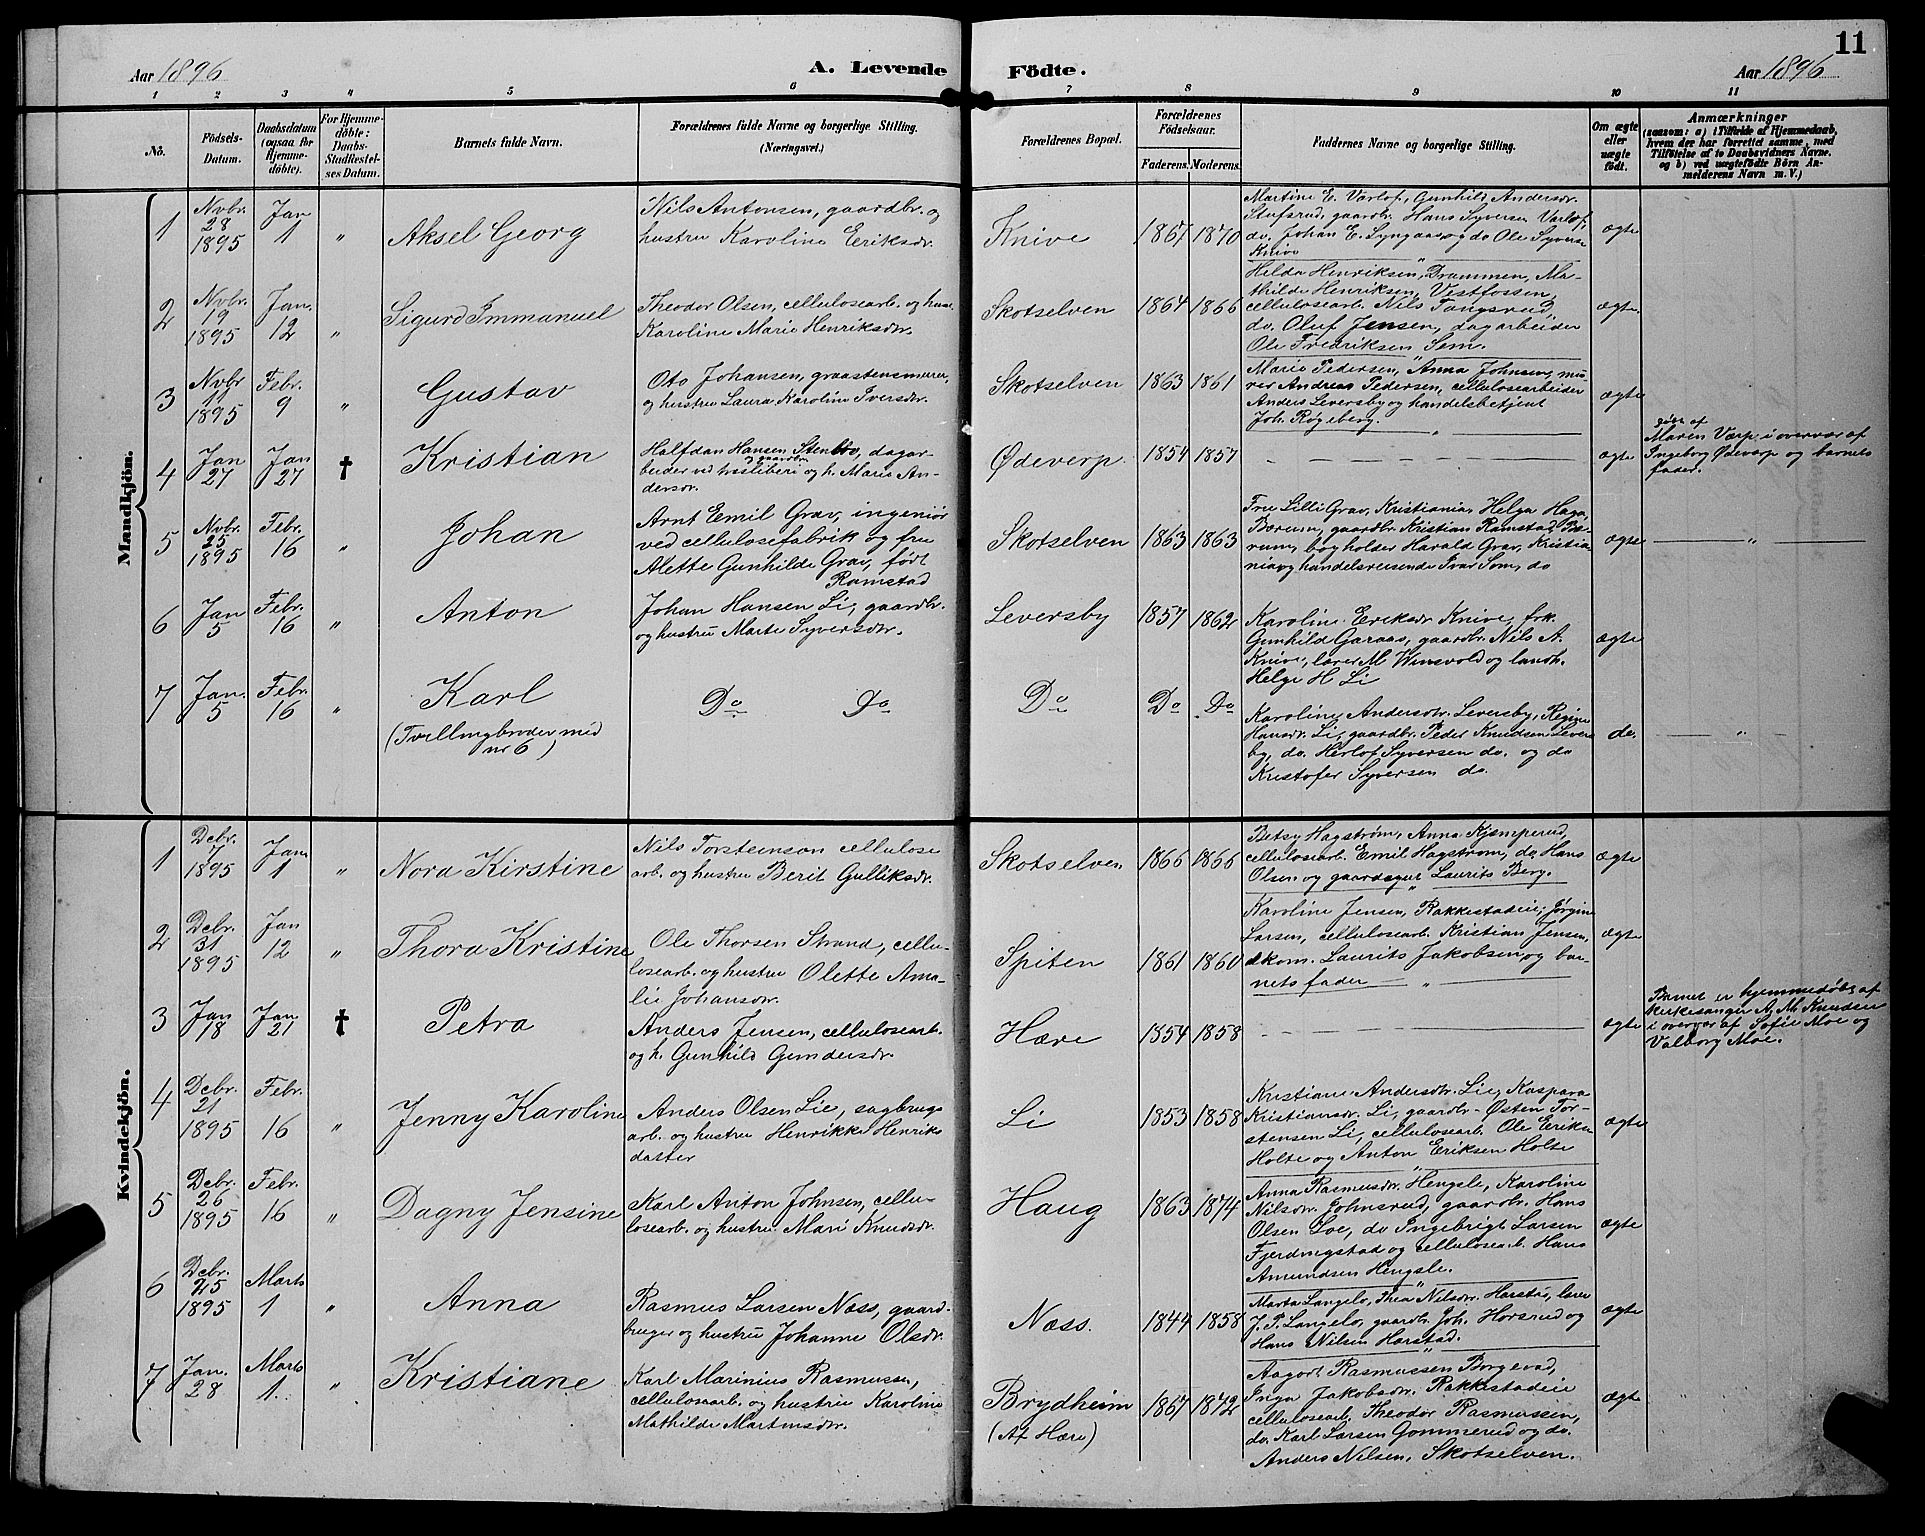 11
Aar 1896
A. Levende Födte.
Aar 1896
1 2 3 4 5 6 7 8 9 10 11
No.
Födsels-
Datum.
Daabsdatum
(ogsaa for
Hjemme-
döbte).
For Hjemme-
döbte:
Daabs-
Stadfæstel-
ses Datum.
Barnets fulde Navn.
Forældrenes fulde Navne og borgerlige Stilling.
(Næringsvei.)
Forældrenes Bopæl.
Forældrenes
Födselsaar.
Faderens. Moderens.
Faddernes Navne og borgerlige Stilling.
Om ægte
eller
uægte
født.
Anmærkninger
(saasom: a) i Tilfælde af Hjemmedaab,
hvem der har forrettet samme, med
Tilföielse af to Daabsvidners Navne,
og b) ved uægtefödte Börn An-
melderens Navn m. V.)
Mandkjön.
1
Nvbr.
28
1895
Jan
1
"
Aksel Georg
Nils Antonsen, gaardbr. og
hustru Karoline Eriksdr.
Knive
1867 1870
Martine E. Varlof, Gunhild Andersdr.
Stufsrud, gaardbr. Hans Syversen Varlof,
do. Johan E. Lyngaas og do Ole Syversen
Knive
ægte
2
Nvbr.
19
1895
Jan.
12
"
Sigurd Immanuel
Theodor Olsen, cellulosearb. og hust.
Karoline Marie Henriksdr.
Skotselven
1864 1866
Helda Henriksen, Drammen, Ma-
thilde Henriksen, Vestfossen,
cellulosearb. Nils Tangsrud,
do. Oluf Jensen, dagarbeider
Ole Fredriksen Sem.
ægte
3
Nvbr
11
1895
Febr.
9
"
Gustav
Oto Johansen, graastensmurer,
og hustru Laura Karoline Iversdr.
Skotselven
1863 1861
Marie Pedersen, Anna Johnsen, mu-
rer Andreas Pedersen, cellulosearbeider
Anders Leversby og handelsbetjent
Joh. Røgeberg.
ægte
4
Jan
27
Jan
27
†
Kristian
Halfdan Hansen Stenbro, dagar-
beider ved træsliberi og h. Marie An-
og gaardbr.
dersdr.
Ødeverp.
1854 1857
ægte
gjort af
Maren Værp i overvær af
Ingeborg Ødevarp og barnets
fader.
5
Nvbr.
25
1895
Febr.
16
"
Johan
Arnt Emil Grav, ingeniør
ved cellulosefabrik og fru
Alette Gunhilde Grav, født
Ramstad
Skotselven
1863 1863
Fru Lilli Grav, Kristiania, Helga Haga,
Bærum, gaardbr. Kristian Ramstad, Bæ-
rum, bogholder Harald Grav, Kristia-
nia og handelsreisende Ivar Som, do
ægte
6
Jan
5
Febr.
16
"
Anton
Johan Hansen Li, gaardbr.
og hustru Marte Syversdr.
Leversby
1857 1862
Karoline Eriksdr Knive, frk.
Gunhild Garaas, gaardbr. Nils A.
Knive, lærer M. Winsvold og landh.
Helge H Li
ægte
7
Jan.
5
Febr.
16
"
Karl
(Tvillingbroder med
nr 6)
Do Do
Do
Do Do
Karoline Andersdtr. Leversby, Regine
Hansdr. Li, gaardbr. Peder Knudsen Levers-
by, do. Herlof Syversen do. og do
Kristofer Syversen do.
do.
Kvindekjön.
1
Debr.
7
1895
Jan
1
"
Nora Kirstine
Nils Torsteinson cellulose
arb. og hustru Berit Gulliksdr.
Skotselven
1866 1866
Betsy Hagstrøm, Anna Kjemperud,
cellulosearb. Emil Hagstrøm, do. Hans
Olsen og gaardager Laurits Berg.
ægte
2
Debr.
31
1895
Jan
12
"
Thora Kristine
Ole Thorsen Strand, cellu-
losearb. og hustru Olette Ama-
lie Johansdr.
Spiten
1861 1860
Karoline Jensen, Rakkestadeie, Jørgine
Larsen, cellulosearb. Kristian Jensen,
skom. Laurits Jakobsen og bar-
nets fader
ægte
3
Jan
18
Jan
21
†
Petra
Anders Jensen, cellulosearb.
og h. Gunhild Gundersdr.
Hære
1854 1858
ægte
Barnet er hjemmedøbt af
kirkesanger A. M. Knudsen
i overvær af Sofie Moe og
Valborg Moe.
4
Debr.
21
1895
Febr.
16
"
Jenny Karoline
Anders Olsen Lie, sagbrugs
arb. og hustru Henrikke Henriks
datter
Li
1853 1858
Kristiane Andersdtr. Lie, Kaspara
Kristiansdr. Li, gaardbr. Østen Tor-
stensen Li, cellulosearb. Ole Eriksen
Holte og Anton Eriksen Holte
ægte
5
Debr.
26
1895
Febr.
16
"
Dagny Jensine
Karl Anton Johnsen, cellu-
losearb. og hustru Mari Knudsdr.
Haug
1863 1874
Anna Rasmusdr. Hengsle, Karoline
Nilsdr. Johnsrud, gaardbr. Hans
Olsen Loe, do Ingebrigt Larsen
Fjerdingstad og cellulosearb. Hans
Amundsen Hengsle.
ægte
6
Debr.
25
1895
Marts
1
"
Anna
Rasmus Larsen Næss, gaard-
bruger og hustru Johanne Olsdr.
Næss.
1844 1858
Marta Langelo, Thea Nilsdr. Harstad, lærer
J. P. Langelo, gaardbr. Joh. Horsrud og
Hans Nilsen Harstad.
ægte
7
Jan.
28
Marts
1.
"
Kristiane
Karl Marinius Rasmussen,
cellulosearb. og hustru Karoline
Mathilde Martinsdr.
Brydheim
(Af Hære)
1867 1872
Aagodt Rasmussen Borgevad,
Inga Jakobsdr. Rakkestadeie
cellulosearb. Theodor Rasmussen,
do. Karl Larsen Gommerud og do.
Anders Nilsen, Skotselven.
ægte